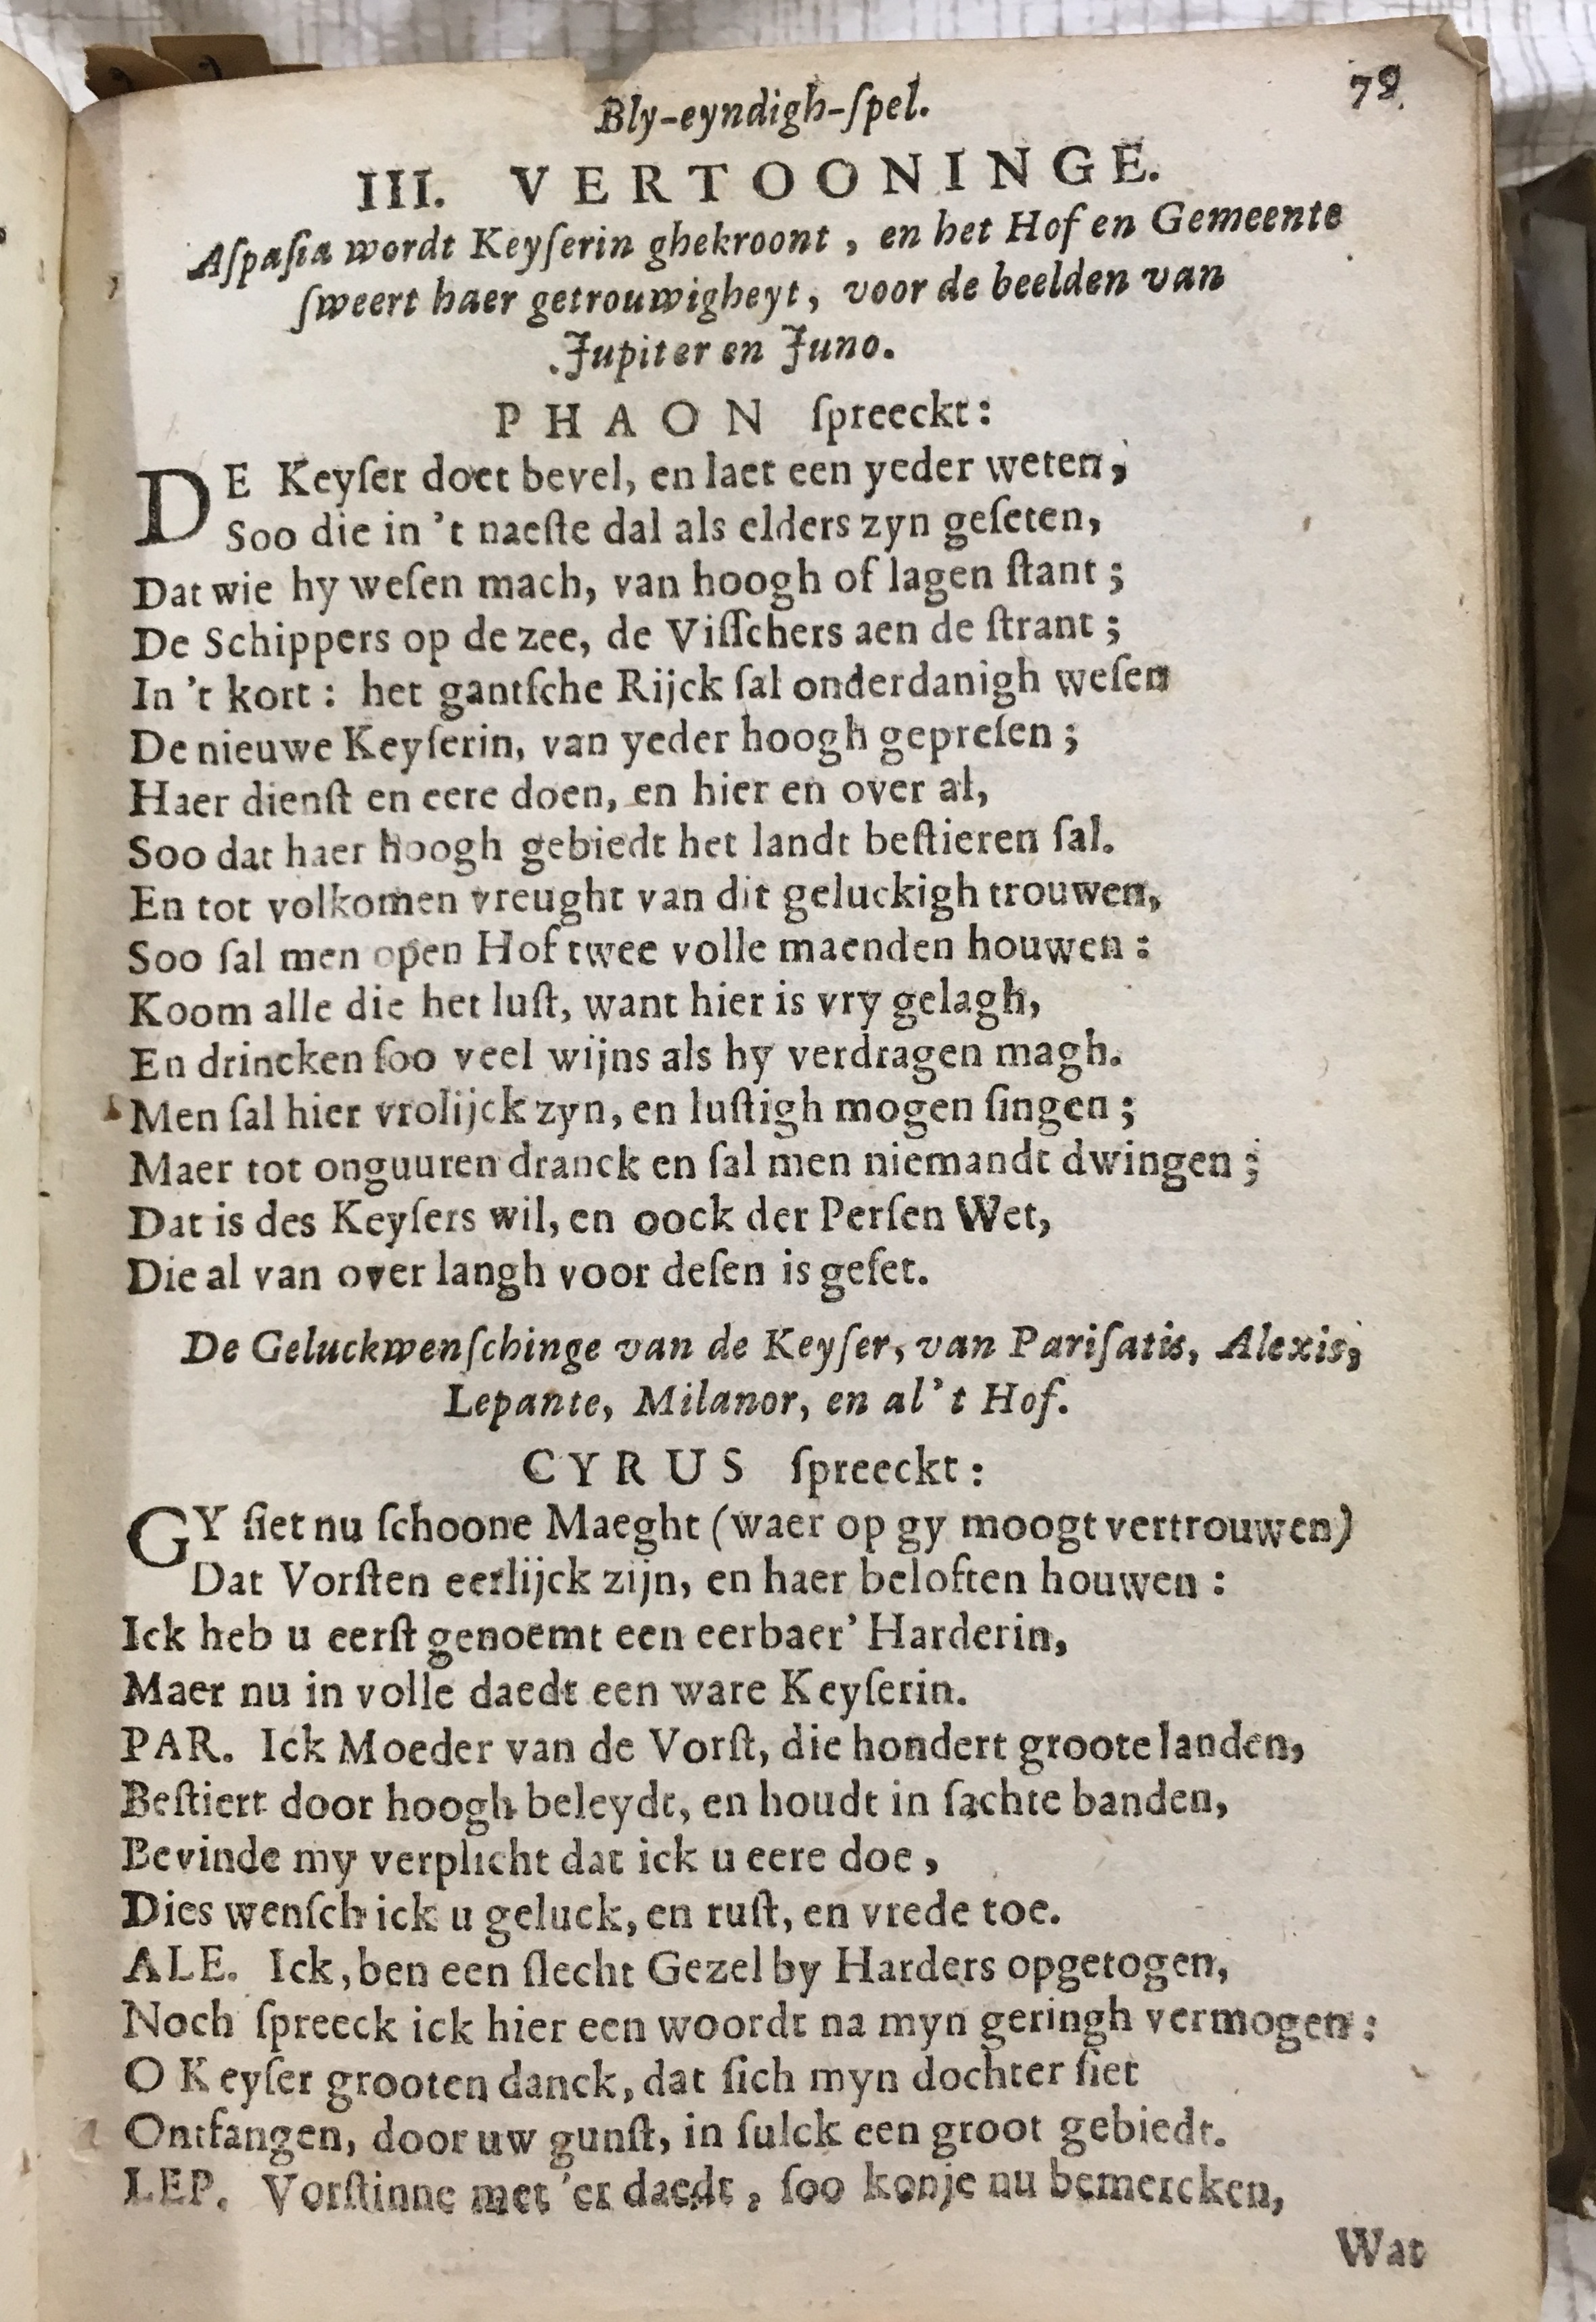 Bly-eyndigh-ſpel. 79
III. VERTOONINGE.
Aſpaſia wordt Keyſerin ghekroont, en het Hof en Gemeente
ſweert haer getrouwigheyt, voor de beelden van
Jupiter en Juno.
PHAON ſpreeckt:
DE Keyſer doet bevel, en laet een yeder weten,
Soo die in 't naeſte dal als elders zyn geſeten,
Dat wie hy weſen mach, van hoogh of lagen ſtant;
De Schippers op de zee, de Viſſchers aen de ſtrant;
In 't kort: het gantſche Rijck ſal onderdanigh weſen
De nieuwe Keyſerin, van yeder hoogh gepreſen;
Haer dienſt en eere doen, en hier en over al,
Soo dat haer hoogh gebiedt het landt beſtieren ſal.
En tot volkomen vreught van dit geluckigh trouwen,
Soo ſal men open Hof twee volle maenden houwen:
Koom alle die het luſt, want hier is vry gelagh,
En drincken ſoo veel wijns als hy verdragen magh.
Men ſal hier vrolijck zyn, en luſtigh mogen ſingen;
Maer tot onguuren dranck en ſal men niemandt dwingen;
Dat is des Keyſers wil, en oock der Perſen Wet,
Die al van over langh voor deſen is geſet.
De Geluckwenſchinge van de Keyſer, van Pariſatis, Alexis,
Lepante, Milanor, en al't Hof.
CYRUS ſpreeckt:
GY ſiet nu ſchoone Maeght (waer op gy moogt vertrouwen)
Dat Vorſten eerlijck zijn, en haer beloften houwen:
Ick heb u eerſt genoemt een eerbaer' Harderin,
Maer nu in volle daedt een ware Keyſerin.
PAR. Ick Moeder van de Vorſt, die hondert groote landen,
Beſtiert door hoogh beleydt, en houdt in ſachte banden,
Bevinde my verplicht dat ick u eere doe,
Dies wenſch ick u geluck, en ruſt, en vrede toe.
ALE. Ick, ben een ſlecht Gezel by Harders opgetogen,
Noch ſpreeck ick hier een woordt na myn geringh vermogen:
O Keyſer grooten danck, dat ſich myn dochter ſiet
Ontfangen, door uw gunſt, in ſulck een groot gebiedt.
LEP. Vorſtinne met 'er daedt, ſoo konje nu bemercken,
Wat